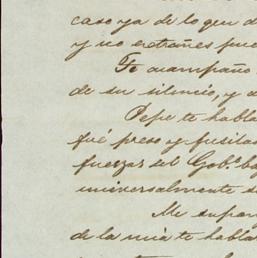 caso ya de lo que d
y no extrañes pue
Te acompaño
de su silencio, y a
Pepe te habla
fué preso y fusila
fuerzas del Gobº. ba
universalmente s
Me supon
de la mia te habla